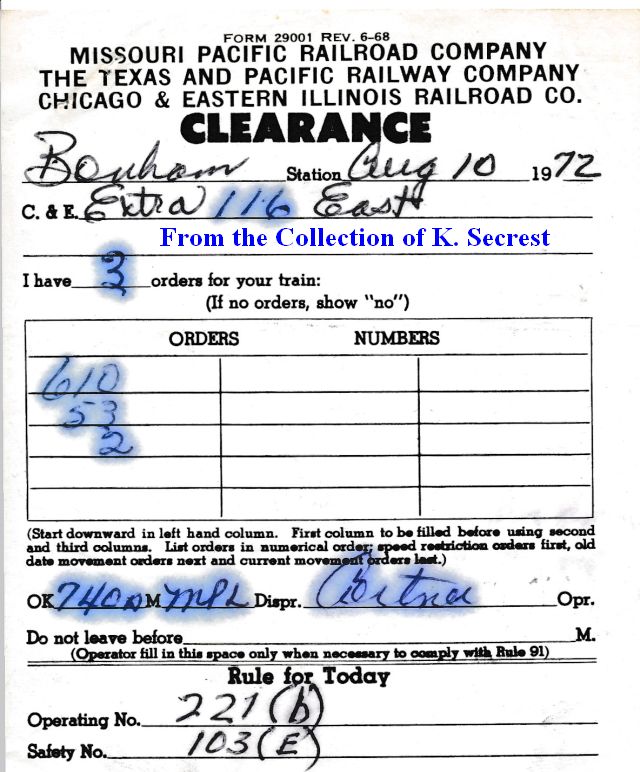 FORM 29001 REV. 6-68
MISSOURI PACIFIC RAILROAD COMPANY
THE TEXAS AND PACIFIC RAILWAY COMPANY
CHICAGO & EASTERN ILLINOIS RAILROAD CO.
CLEARANCE
Bonham Station Aug 10 1972
C. & E. Extra 116 East
From the Collection of K. Secrest
I have 3 orders for your train:
(If no orders, show "no")
ORDERS NUMBERS
610
53
2
(Start downward in left hand column. First column to be filled before using second
and third columns. List orders in numerical order; speed restriction orders first, old
date movement orders next and current movement orders last.)
OK 740 a M MPL Dispr. Opr.
Do not leave before M.
(Operator fill in this space only when necessary to comply with Rule 91)
Rule for Today
Operating No. 221 (b)
Safety No. 103 (E)